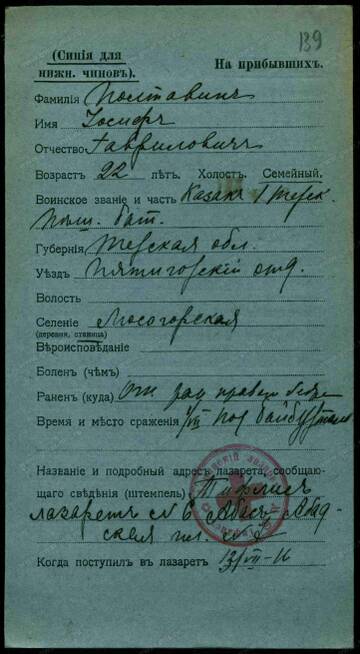 139
(Синія для
нижн. чиновъ).
На прибывшихъ.
Фамилія Полтавинъ
Имя Іосифъ
Отчество Гавриловичъ
Возрастъ 22 лѣтъ. Холост. Семейный.
Воинское званіе и часть Казакъ 1 терск.
пласт. бат.
Губернія Терская обл.
Уѣздъ Пятигорскій отд.
Волость
Селеніе Лысогорская
(деревня, станица)
Вѣроисповѣданіе
Боленъ (чѣмъ)
Раненъ (куда) правого бедра
Время и мѣсто сраженія 1/VII под Байбуртомъ
Названіе и подробный адресъ лазарета, сообщаю-
щаго свѣдѣнія (штемпель) Тифлис
лазаретъ № 6
пл. №
Когда поступилъ въ лазаретъ 13/VII-16